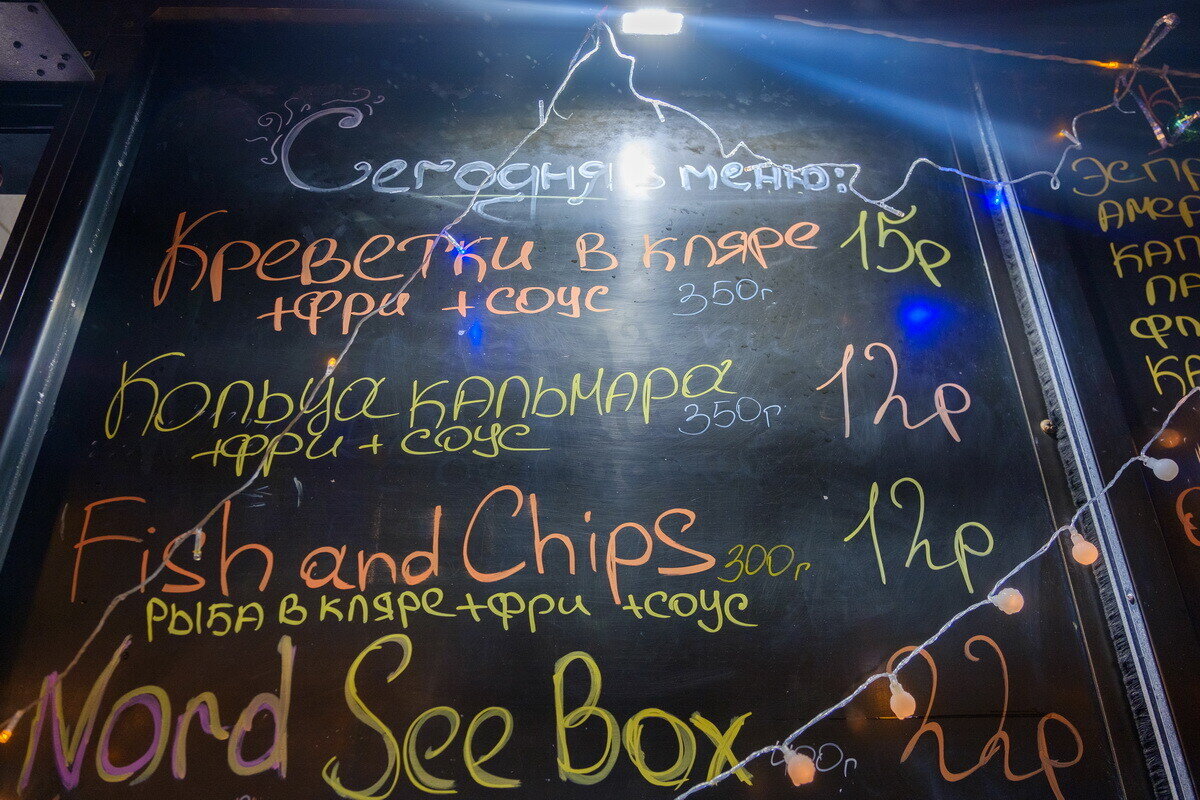 Сегодня в меню:
Креветки в кляре 15р
+фри +соус 350г.
Кольца кальмара 350г 12р
+фри + соус
Fish and Chips 300г 12р
рыба в кляре +фри +соус
Nord See Box 22р